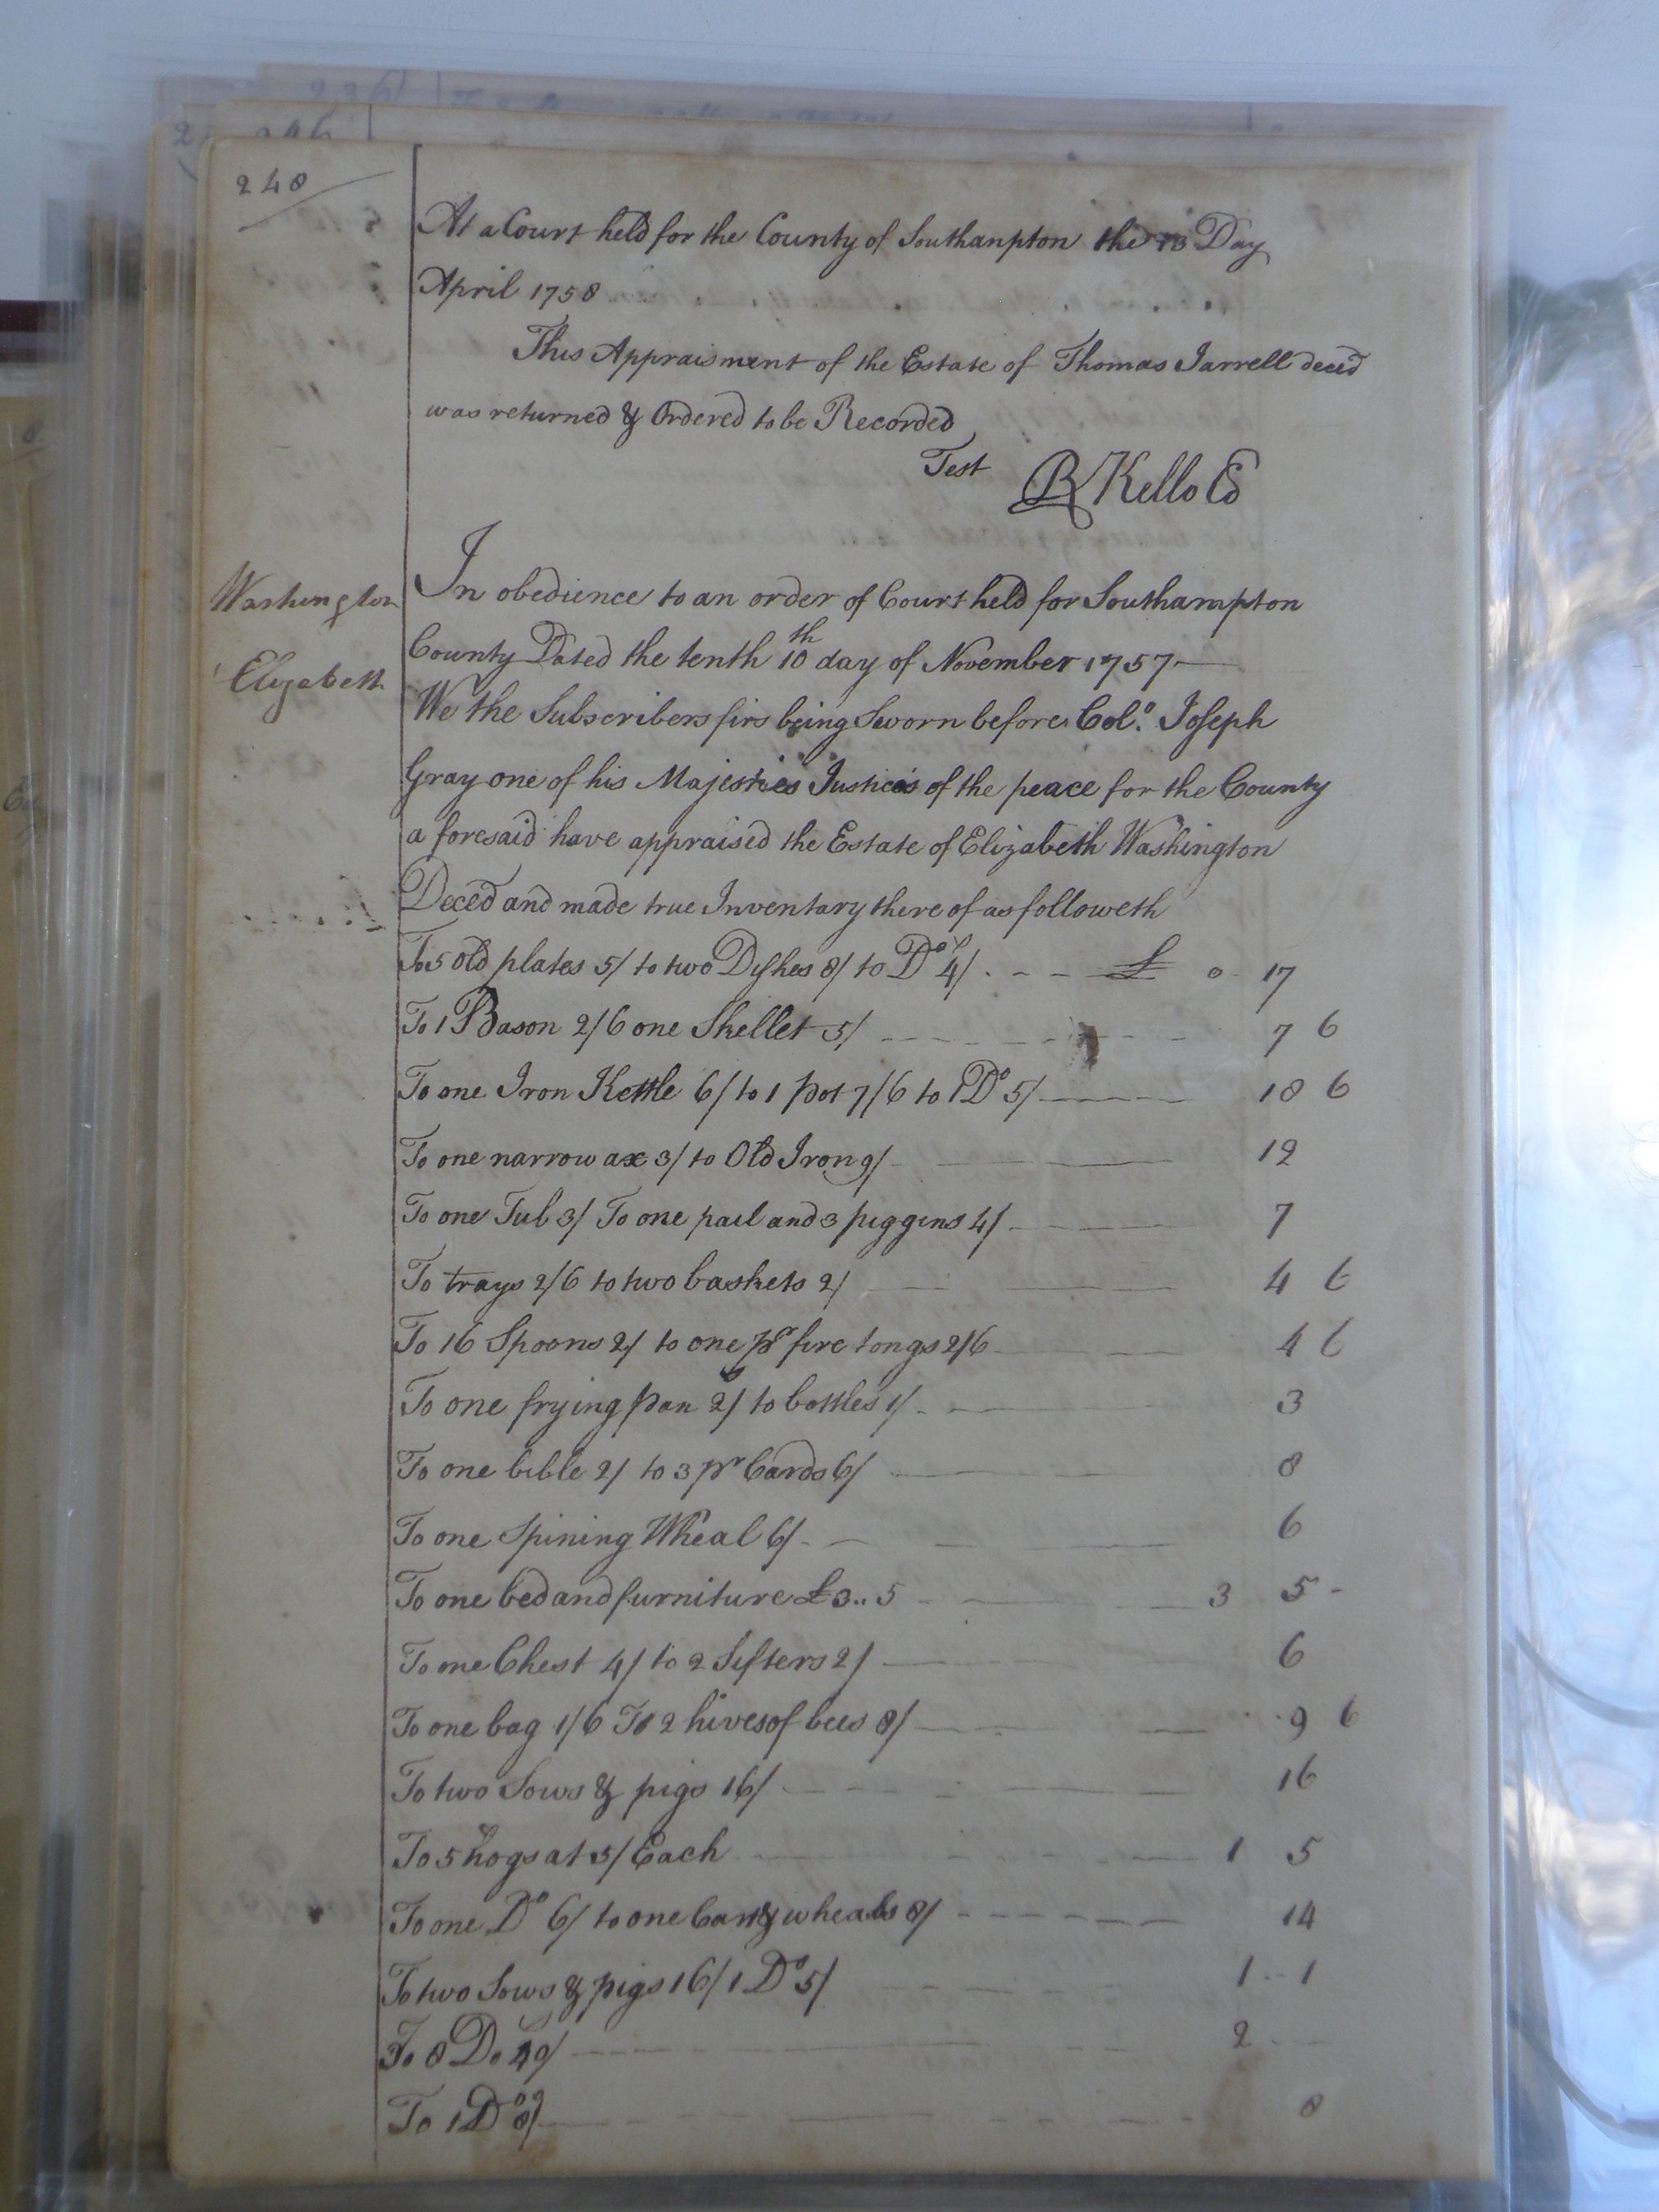 248
At a Court held for the County of Southanpton the 13 Day
April 1758
This Appraisment of the Estate of Thomas Jarrell deced
was returned & Ordered to be Recorded
Test R Kello Co
Washington
Elizabeth
In obedience to an order of Court held for Southampton
County Dated the tenth 10th day of November 1757
We the Subscribers firs being Sworn before Colo. Joseph
Gray one of his Majesties Justices of the peace for the County
a foresaid have appraised the Estate of Elizabeth Washington
Deced and made true Inventary there of as followeth
To 5 old plates 5/ to two Dyshes 8/ to Do 4/ £ 0 17
To 1 Bason 2/6 one Skellet 5/ 7 6
To one Iron Kettle 6/ to 1 pot 7/6 to 1 Do 5/ 18 6
To one narrow ax 3/ to Old Iron 9/ 12
To one Tub 3/ To one pail and 3 piggins 4/ 7
To trays 2/6 to two baskets 2/ 4 6
To 16 Spoons 2/ to one pr fire tongs 2/6 4 6
To one frying pan 2/ to bottles 1/ 3
To one bible 2/ to 3 pr Cards 6/ 8
To one Spining Wheal 6/ 6
To one bed and furniture £3..5 3 5 -
To one Chest 4/ to 2 Sifters 2/ 6
To one bag 1/6 To 2 hives of bees 8/ 9 6
To two Sows & pigs 16/ 16
To 5 hogs at 5/ Each 1 5
To one Do 6/ to one Cart & wheals 8/ 14
To two Sows & pigs 16/ 1 Do 5/ 1 .. 1
To 8 Do 40/ 2
To 1 Do 8/ 8